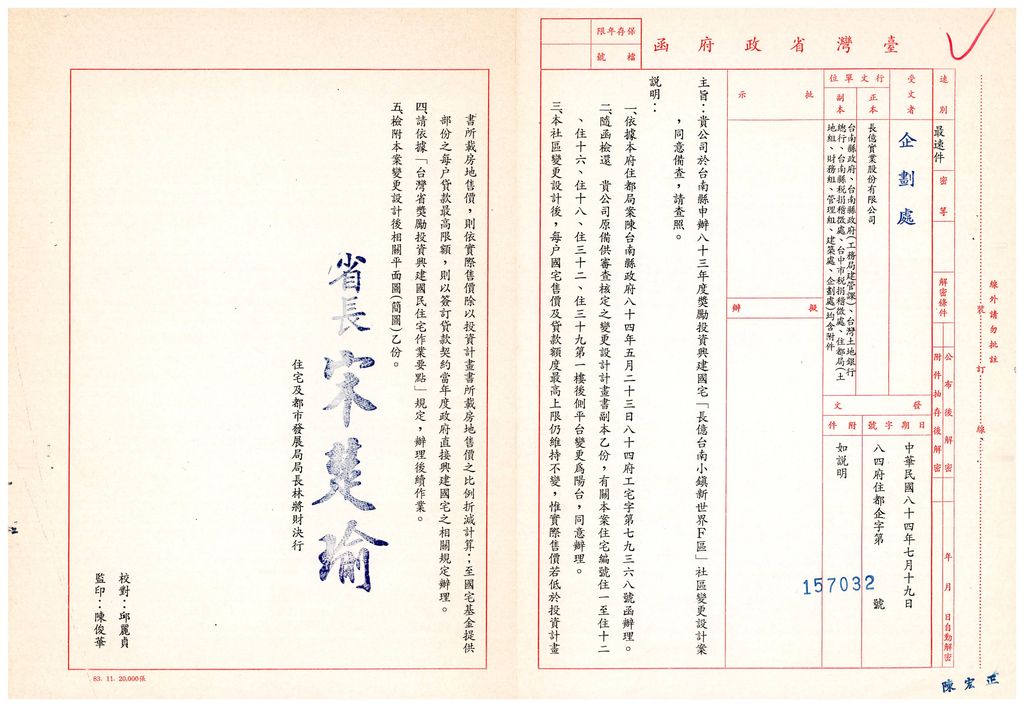 臺灣省政府函
保存年限
檔號
速別
最速件
密等
解密條件
公布後解密
附件抽存後解密
年月日自動解密
線外請勿批註
裝訂線
受文者
企劃處
行文單位
正本
長億實業股份有限公司
副本
台南縣政府、台南縣政府(工務局建管課)、台灣土地銀行
總行、台南縣稅捐稽徵處、台中市稅捐稽徵處、住都局(土
地組、財務組、管理組、建築處、企劃處)均含附件
發文
日期
中華民國八十四年七月十九日
字號
八四府住都企字第157032號
附件
如說明
批示
擬辦
主旨:貴公司於台南縣申辦八十三年度獎勵投資興建國宅「長億台南小鎮新世界F區」社區變更設計案
,同意備查,請查照。
說明:
一、依據本府住都局案陳台南縣政府八十四年五月二十三日八十四府工宅字第七九三六八號函辦理。
二、隨函檢還 貴公司原備供審查核定之變更設計計畫書副本乙份,有關本案住宅編號住一至住十二
、住十六、住十八、住三十二、住三十九第一樓後側平台變更為陽台,同意辦理。
三、本社區變更設計後,每戶國宅售價及貸款額度最高上限仍維持不變,惟實際售價若低於投資計畫
書所載房地售價,則依實際售價除以投資計畫書所載房地售價之比例折減計算;至國宅基金提供
部份之每戶貸款最高限額,則以簽訂貸款契約當年度政府直接興建國宅之相關規定辦理。
四、請依據「台灣省獎勵投資興建國民住宅作業要點」規定,辦理後續作業。
五、檢附本案變更設計後相關平面圖(簡圖)乙份。
省長宋楚瑜
住宅及都市發展局局長林將財決行
校對:邱麗貞
監印:陳俊華
83. 11. 20.000張
陳宏正